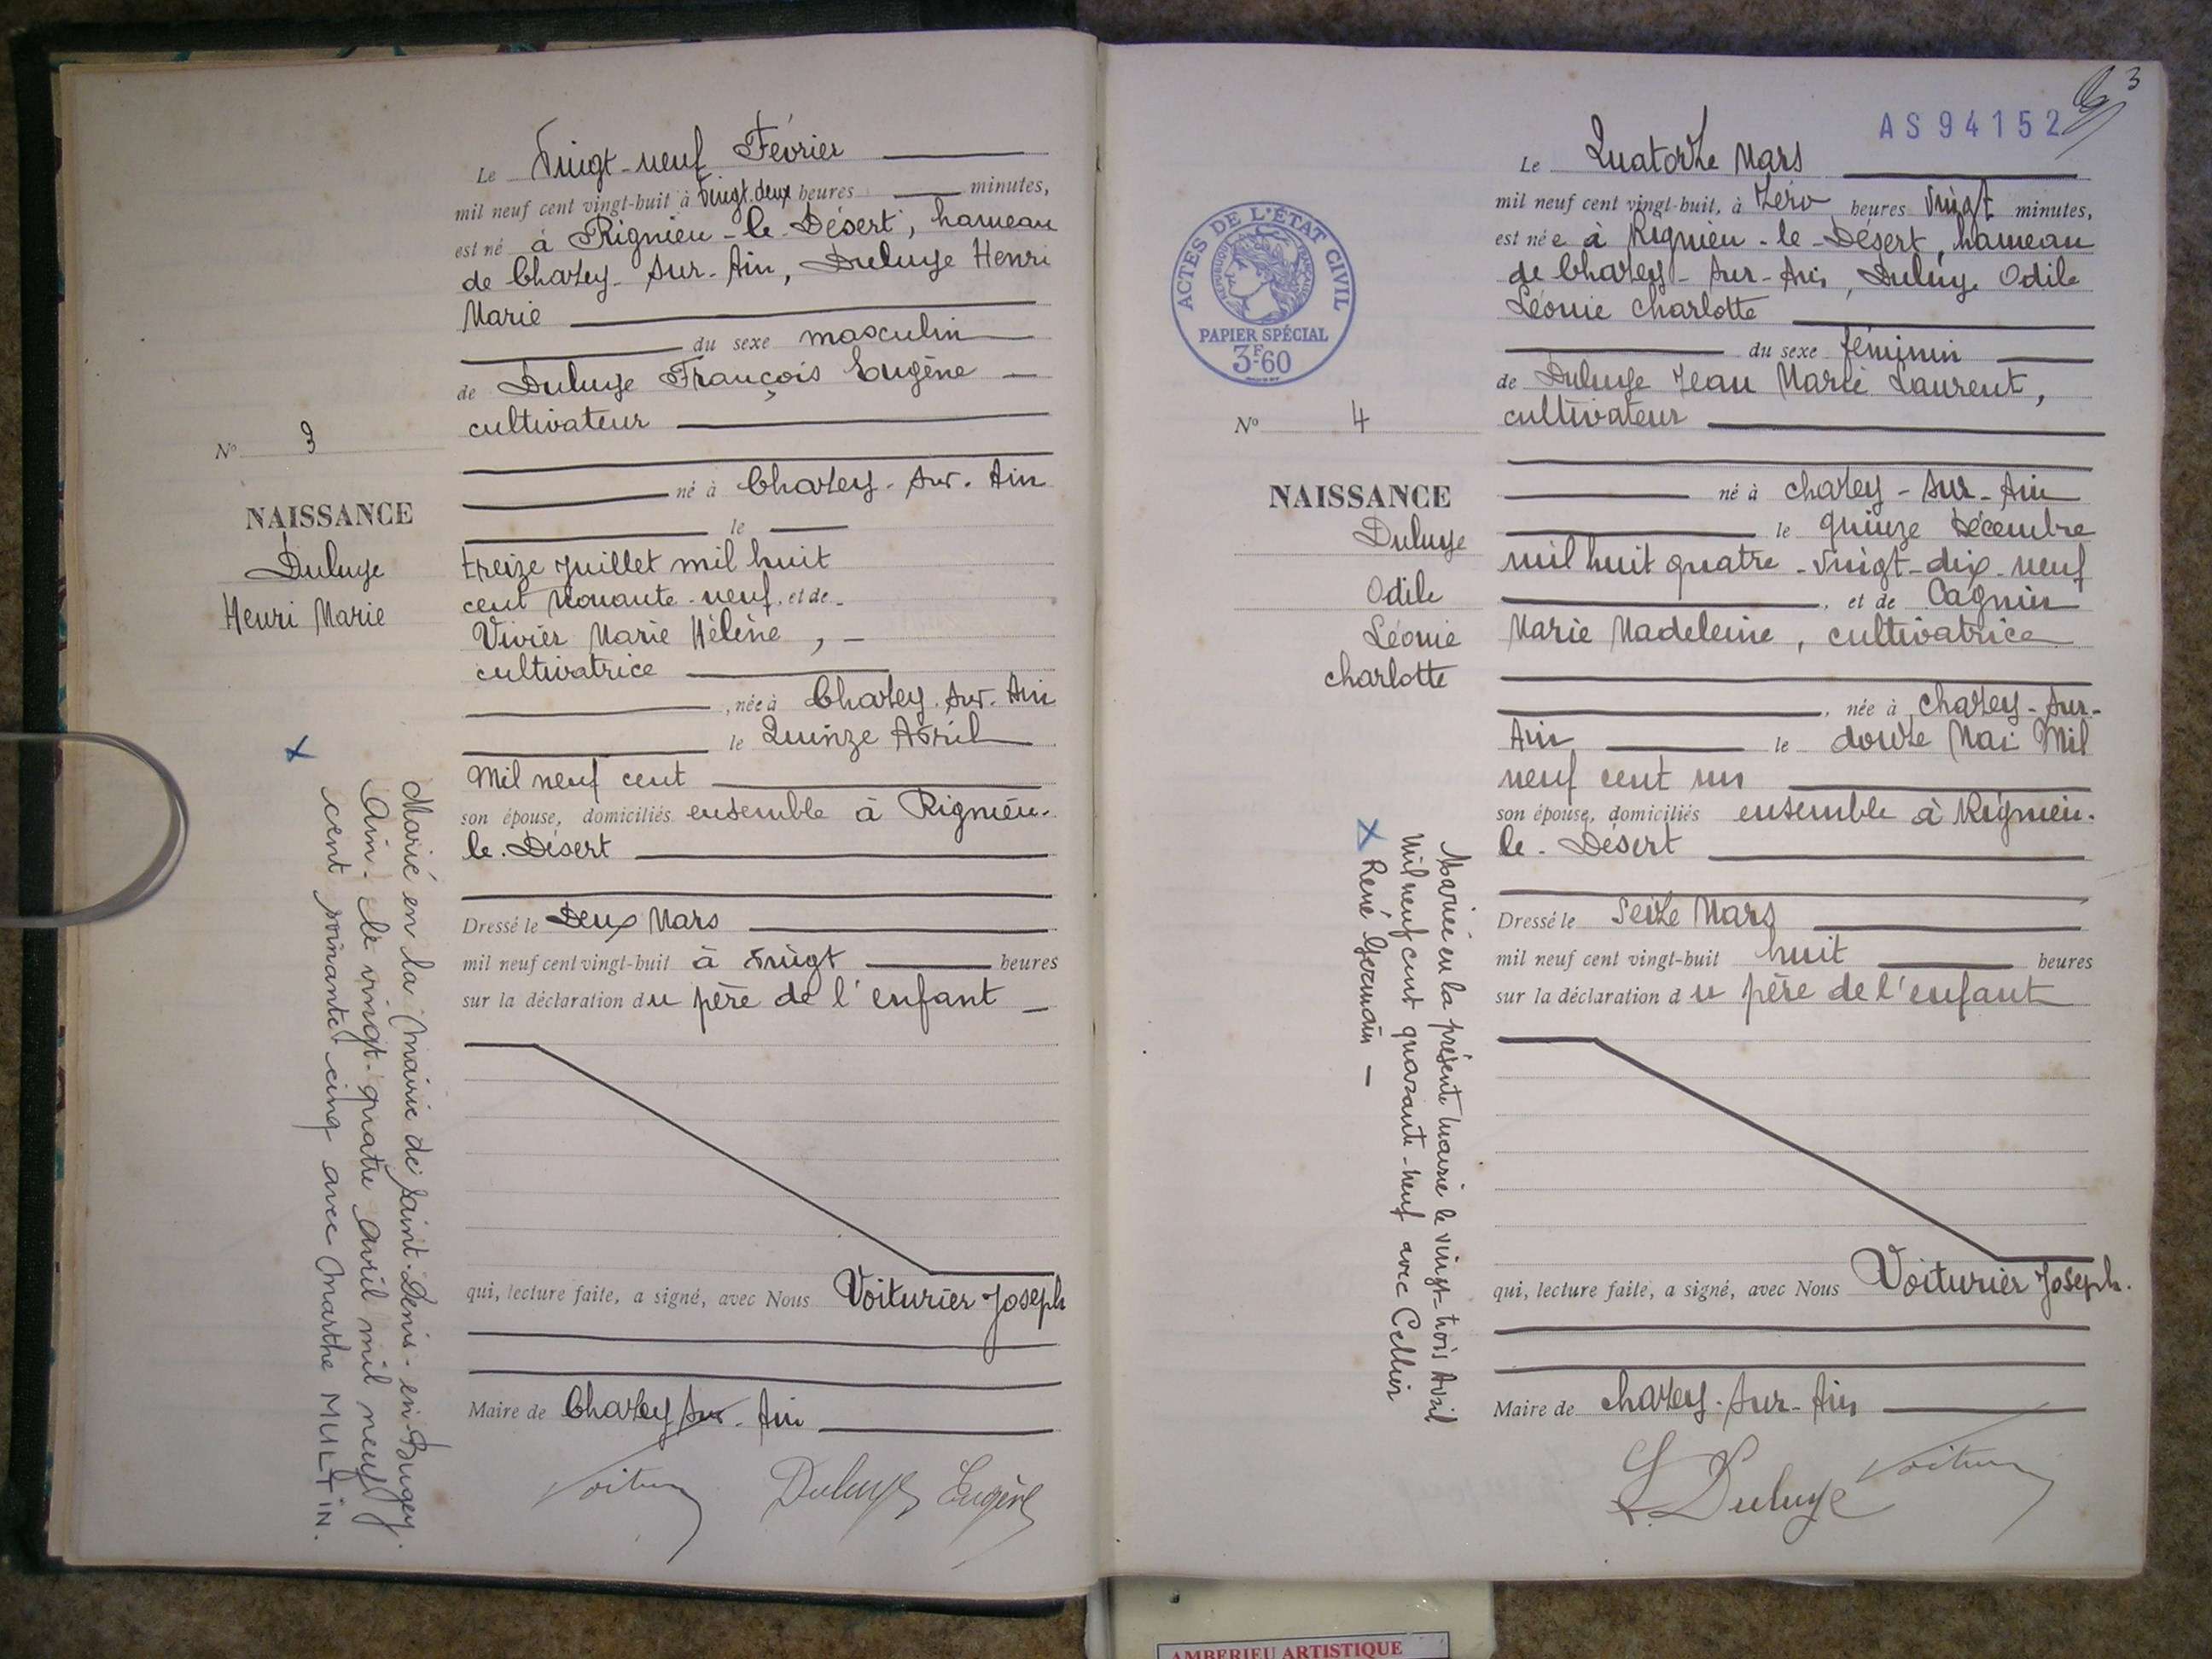 Le Vingt-neuf Février
mil neuf cent vingt-huit à Vingt deux heures minutes,
est né à Rignieu-le-Désert, hameau
de Chazey-sur-Ain, Duluye Henri
Marie
du sexe masculin
de Duluye François Eugène
cultivateur
né à Chazey-sur-Ain
le
treize juillet mil huit
cent nonante-neuf, et de
Vivier Marie Hélène,
cultivatrice
, née à Chazey-sur-Ain
le Quinze Avril
Mil neuf cent
son épouse, domiciliés ensemble à Rignieu-
le-Désert
Dressé le Deux Mars
mil neuf cent vingt-huit à vingt heures
sur la déclaration du père de l'enfant
qui, lecture faite, a signé, avec Nous Voiturier Joseph
Maire de Chazey-sur-Ain
Duluye Eugène
No 3
NAISSANCE
Duluye
Henri Marie
Marié en la Mairie de Saint-Denis-en-Bugey.
Ain. le vingt-quatre Avril mil neuf
cent soixante cinq avec Marthe MULTIN.
3
AS94152
Le Quatorze Mars
mil neuf cent vingt-huit, à Zéro heures Vingt minutes,
est née à Rignieu-le-Désert, hameau
de Chazey-sur-Ain, Duluye Odile
Léonie Charlotte
du sexe féminin
de Duluye Jean Marie Laurent,
cultivateur
né à Chazey-sur-Ain
le quinze Décembre
mil huit quatre-vingt-dix-neuf
, et de Cagnin
Marie Madeleine, cultivatrice
, née à Chazey-sur-
Ain le douze Mai Mil
neuf cent un
son épouse, domiciliés ensemble à Rignieu-
le-Désert
Dressé le Seize Mars
mil neuf cent vingt-huit huit heures
sur la déclaration du père de l'enfant
qui, lecture faite, a signé, avec Nous Voiturier Joseph.
Maire de Chazey-sur-Ain
Duluye
ACTES DE L'ÉTAT CIVIL
RÉPUBLIQUE FRANÇAISE
PAPIER SPÉCIAL
3F60
No 4
NAISSANCE
Duluye
Odile
Léonie
Charlotte
Mariée en la présente mairie le vingt-trois Avril
Mil neuf cent quarante-neuf avec Cellier
René Germain
AMBERIEU ARTISTIQUE